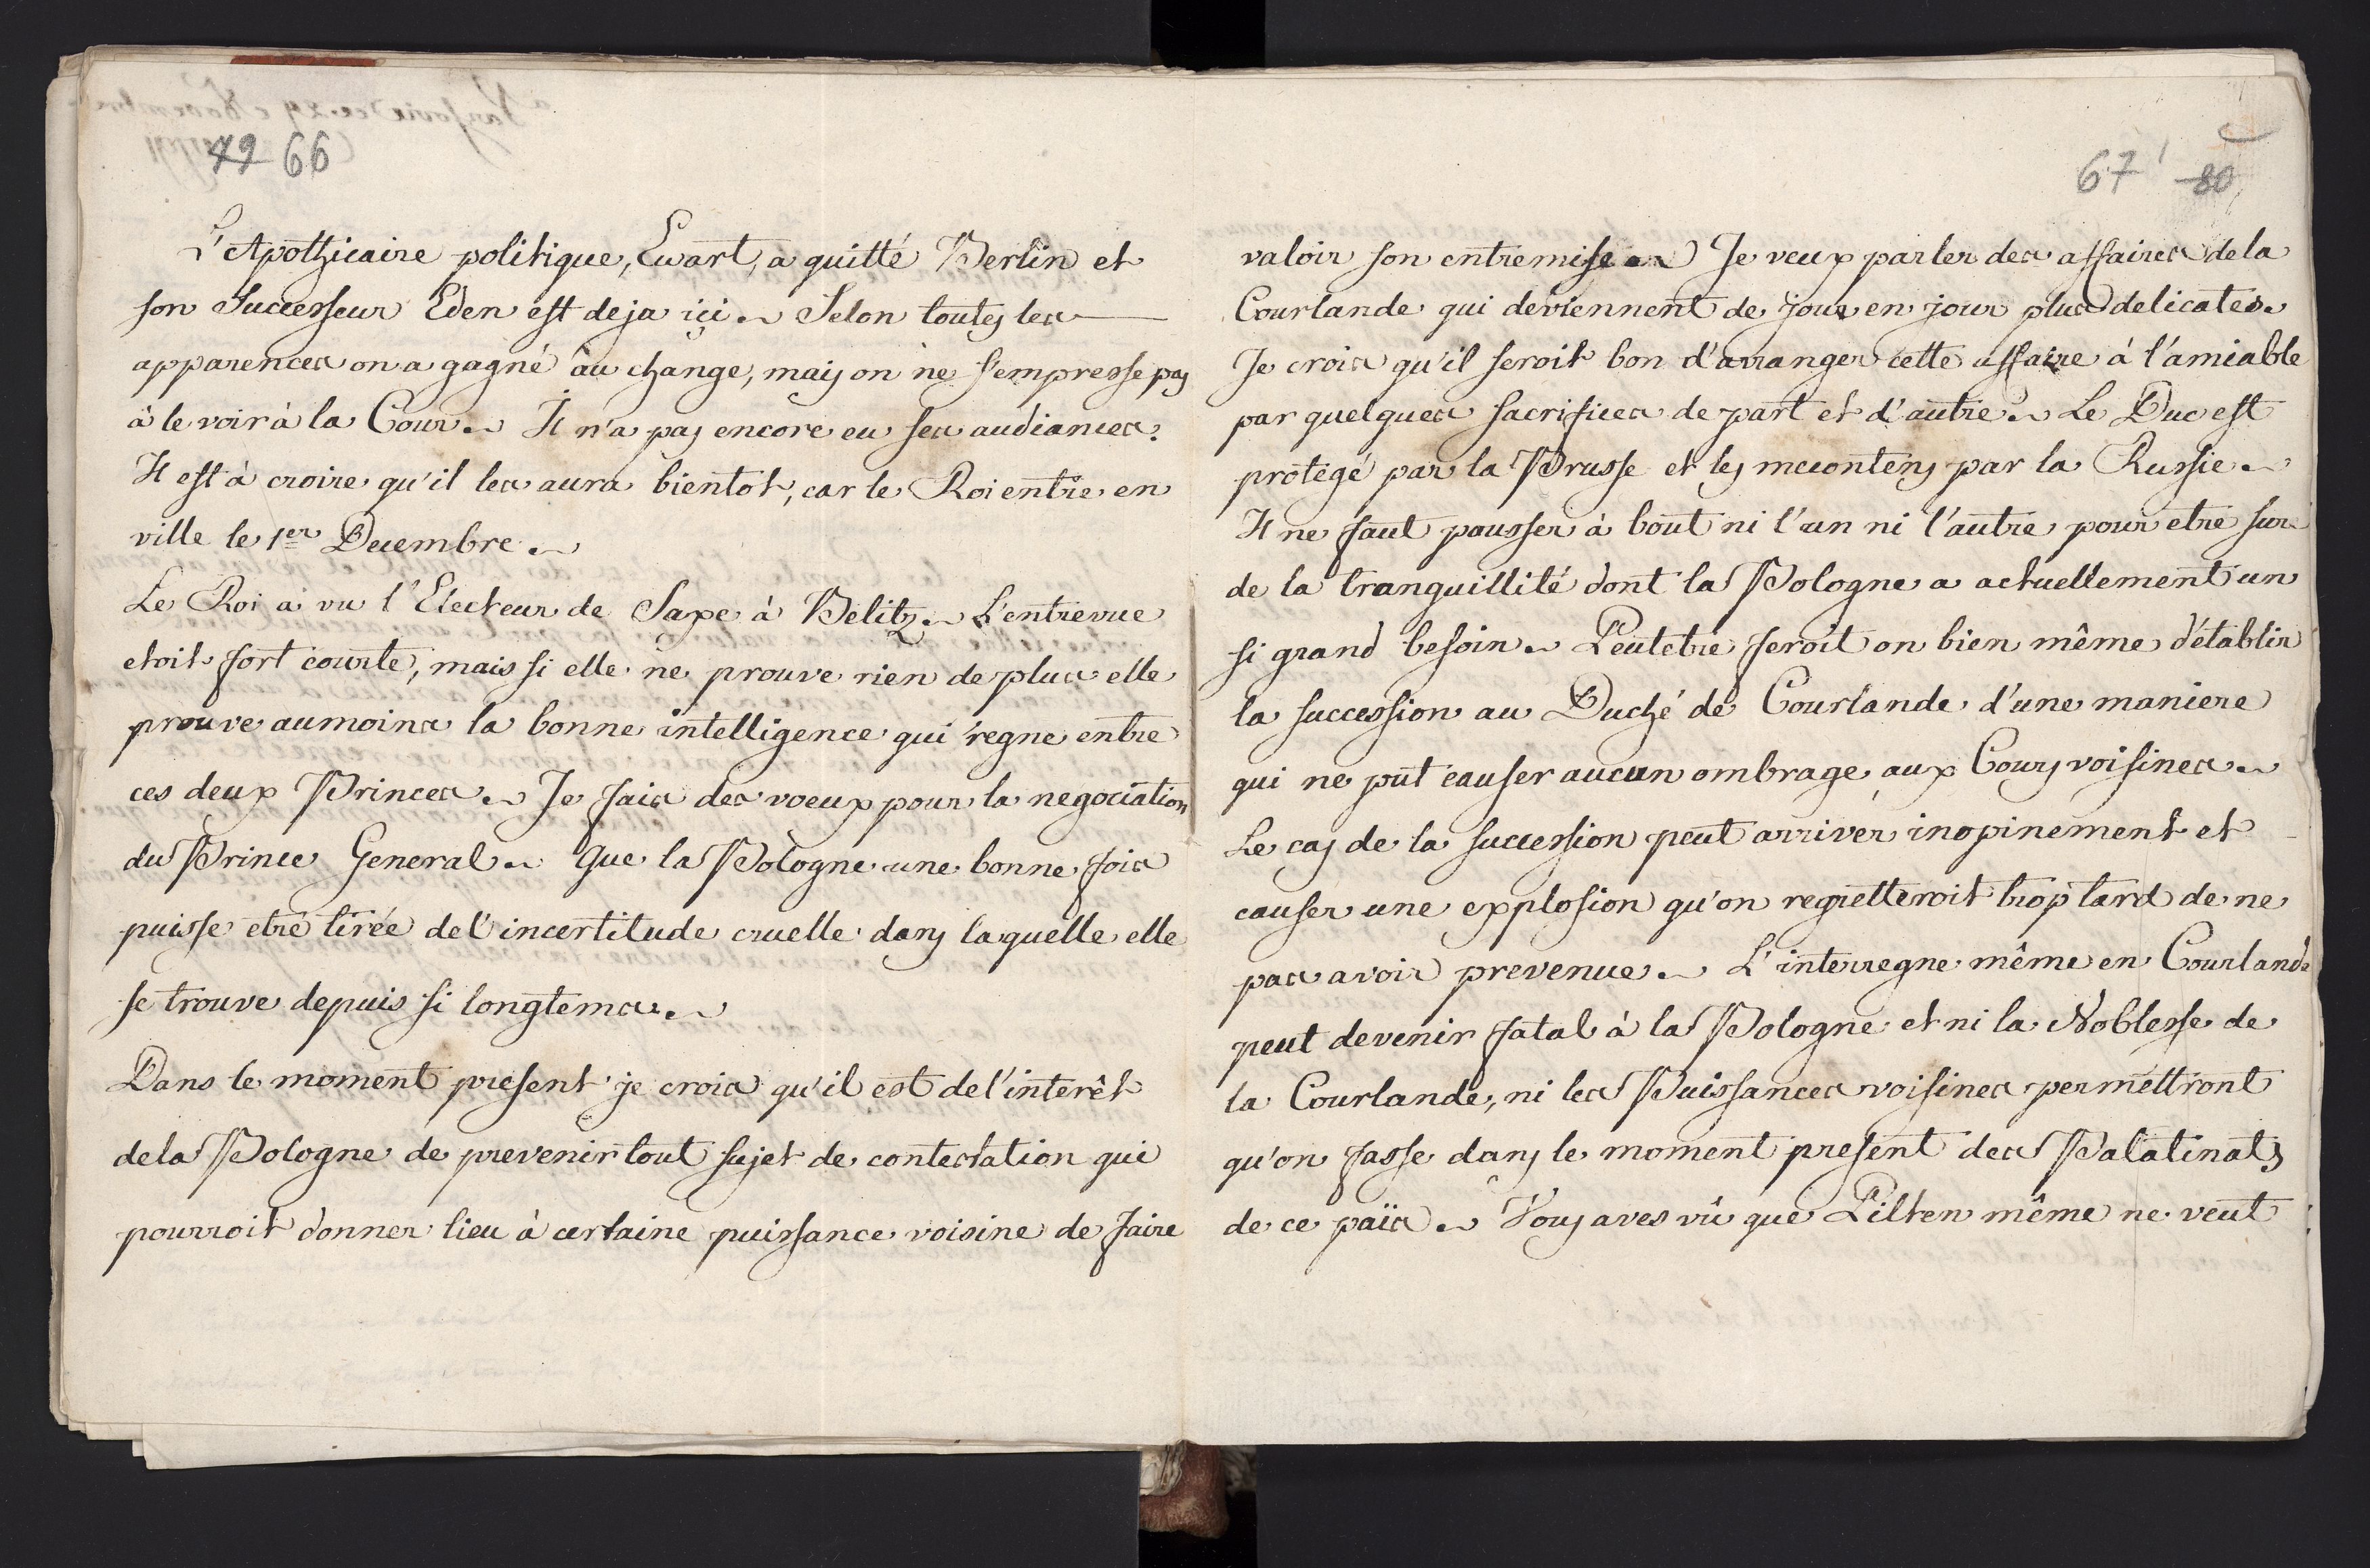 79 66
L'Apothicaire politique, Ewart, a quitté Berlin et
son Successeur Eden est deja ici. Selon toutes les
apparences on a gagné au change, mais on ne s'empresse pas
à le voir à la Cour. Il n'a pas encore eu ses audiances.
Il est à croire qu'il les aura bientot, car le Roi entre en
ville le 1er Decembre.
Le Roi a vu l'Electeur de Saxe à Belitz. L'entrevue
etoit fort courte, mais si elle ne prouve rien de plus elle
prouve aumoins la bonne intelligence qui regne entre
ces deux Princes. Je fais des voeux pour la negociation
du Prince General. Que la Pologne une bonne fois
puisse etre tirée de l'incertitude cruelle dans laquelle elle
se trouve depuis si longtems.
Dans le moment present je crois qu'il est de l'interêt
de la Pologne de prevenir tout sujet de contestation qui
pourroit donner lieu à certaine puissance voisine de faire
67 80
valoir son entremise. Je veux parler des affaires de la
Courlande qui deviennent de jour en jour plus delicates.
Je crois qu'il seroit bon d'arranger cette affaire à l'amiable
par quelques sacrifices de part et d'autre. Le Duc est
protegé par la Prusse et les mecontens par la Russie.
Il ne faut pousser à bout ni l'un ni l'autre pour etre sur
de la tranquillité dont la Pologne a actuellement un
si grand besoin. Peutetre feroit on bien même d'établir
la succession au Duché de Courlande d'une maniere
qui ne put causer aucun ombrage aux Cours voisines.
Le cas de la succession peut arriver inopinement et
causer une explosion qu'on regretteroit trop tard de ne
pas avoir prevenue. L'interregne même en Courlande
peut devenir fatal à la Pologne et ni la Noblesse de
la Courlande, ni les Puissances voisines permettront
qu'on fasse dans le moment present des Palatinats
de ce païs. Vous aves vû que Pilten même ne veut